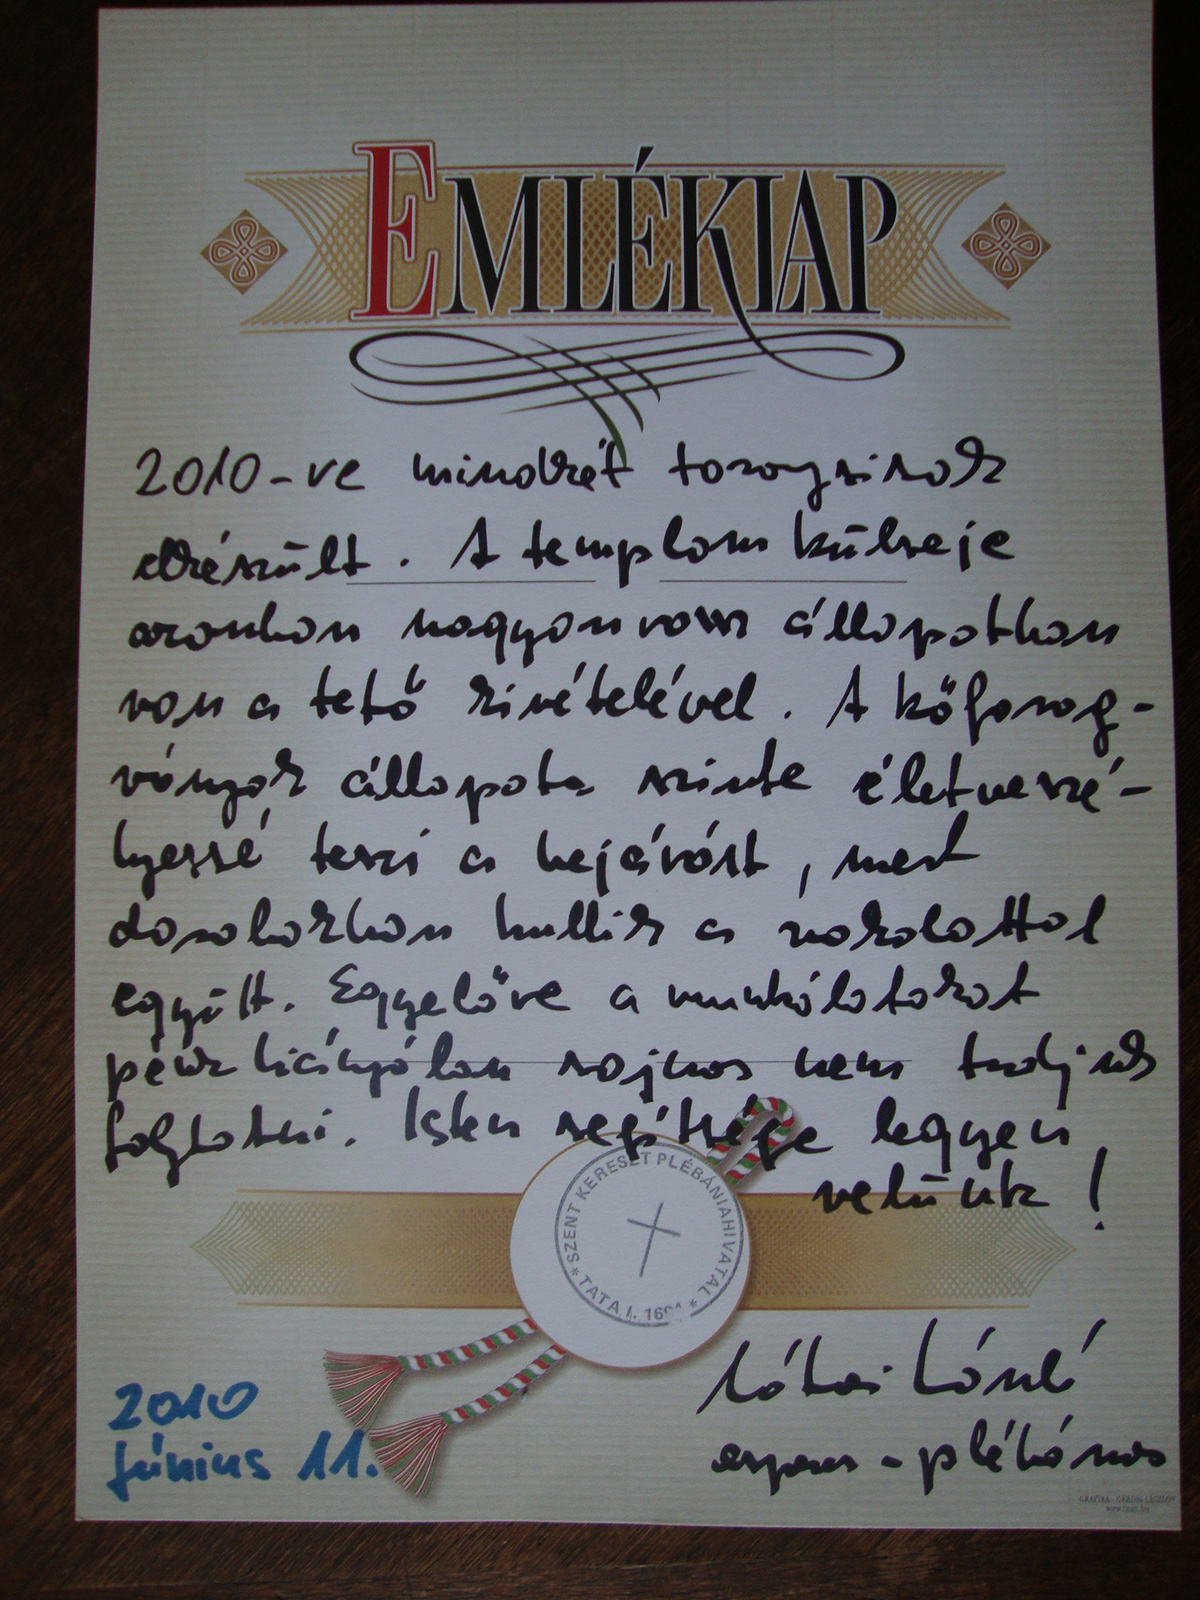 EMLÉKLAP
2010-re mindkét toronysisak
elkészült. A templom külseje
azonban nagyon rossz állapotban
van a tető kivételével. A kőfarag-
ványok állapota szinte életveszé-
lyessé teszi a bejárást, mert
darabokban hullik a vakolattal
együtt. Egyelőre a munkálatokat
pénz hiányában sajnos nem tudjuk
folytatni. Isten segítsége legyen
velünk!
* SZENT KERESZT PLÉBÁNIAHIVATAL * TATA I.
2010
Június 11.
László
esperes-plébános
GRAFIKA - GÁRDAI LÁSZLÓ